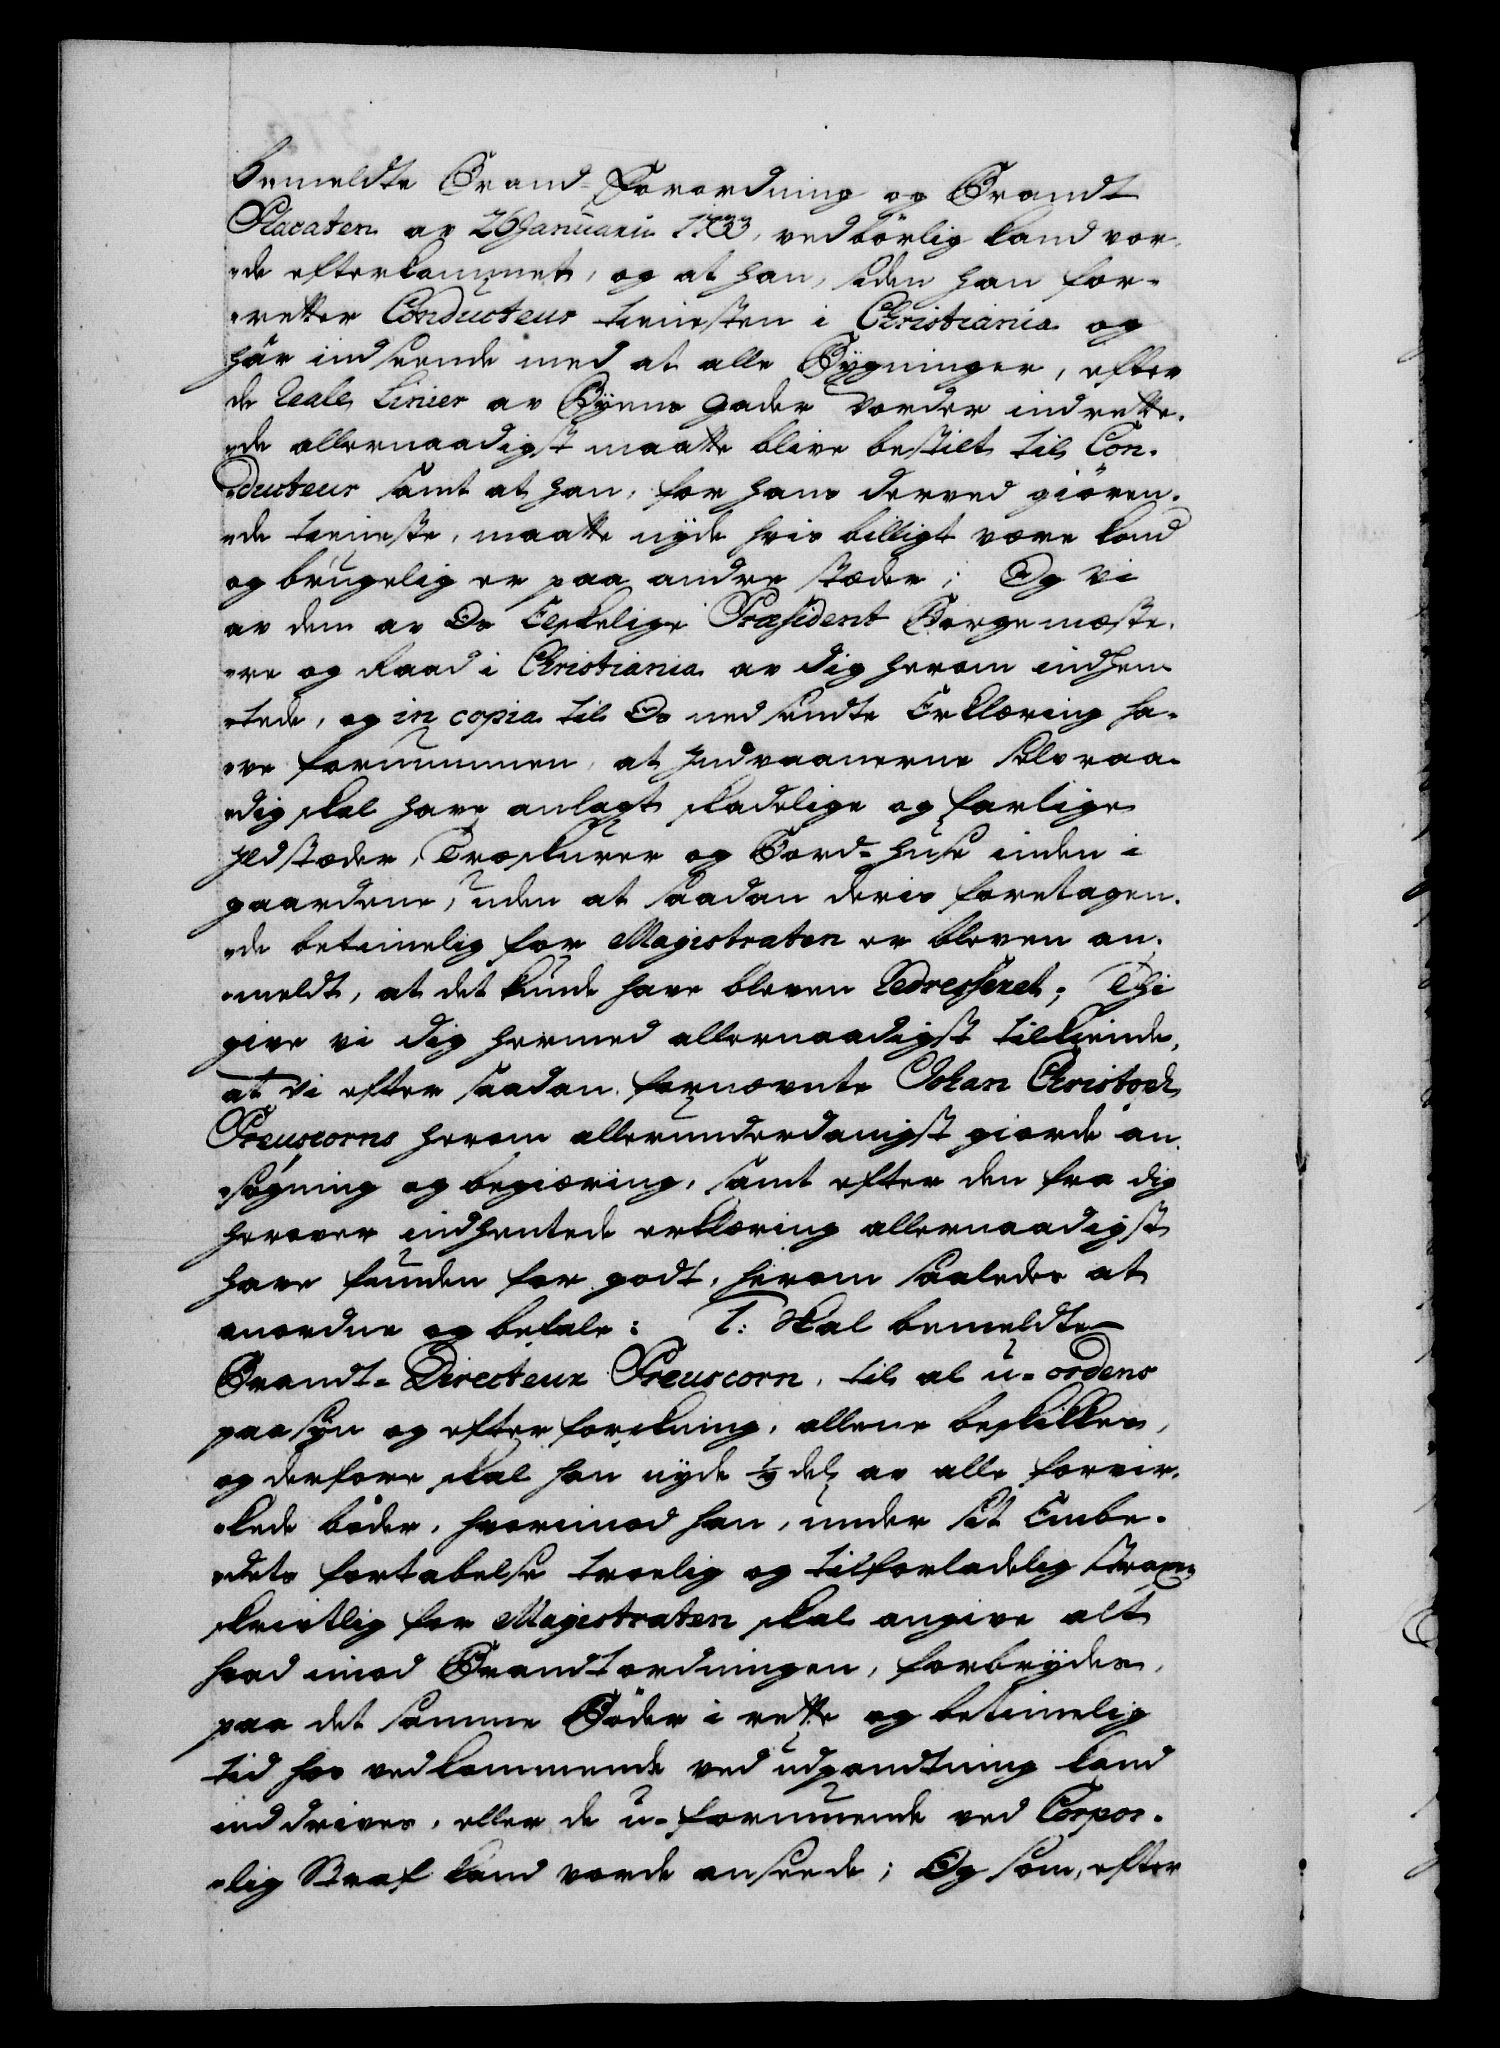 bemeldte Brand-Forordning og Brandt
Placaten av 26 Januarii 1733, vedbörlig kand vor-
-de efterkommet, og at han, siden han for-
-retter Conducteur tienesten i Christiania og
här indseende med at alle Bÿgninger, efter
de Reale Linier av Bÿens gader vorder indrette-
-de allernaadigst maatte blive bestilt til Con-
-ducteur samt at han, for hans derved giören-
-de tieneste, maatte nÿde hvis billigt være kand
og brugelig er paa andre stæder; Og Vi
av den av Os Elskelige Præsident Borgemæste-
-re og Raad i Christiania av dig herom indhen-
-tede, og in copia til Os nedsendte Erklæring ha-
-ve fornummen, at Indvaanerne selvraa-
-dig skal have anlagt skadelige og farlige
Ildstæder, Træskurer og Bord-huse inden i
gaardene, uden at saadan deris foretagen-
-de betimelig for Magistraten er bleven an-
-meldt, at det kunde have bleven Redresseret; Thi
give vi dig hermed allernaadigst tilkiende,
at Vi efter saadan fornævnte Johan Christoph
Preuscorns herom allerunderdanigst giorde an-
-søgning og begiæring, samt efter den fra dig
herover indhentede erklæring allernaadigst
have funden for godt, herom saaledes at
anordne og befale: 1: Skal bemeldte
Brandt-Directeur Preuscorn, til al u-ordens
paasÿn og efterforskning, allene beskikkes,
og derfore skal han nÿde 1/3 del av alle forvir-
-kede bøder, hvorimod han, under sit Embe-
-dets fortabelse troelig og tilforladelig strax
skriftlig for Magistraten skal angive alt
hvad imod Brandtordningen, forbrÿdes,
paa det samme Böder i rette og betimelig
tid hos vedkommende ved udpandtning kand
inddrives, eller de u-formuende ved Corpor-
-lig Straf kand vorde anseede; Og som, efter